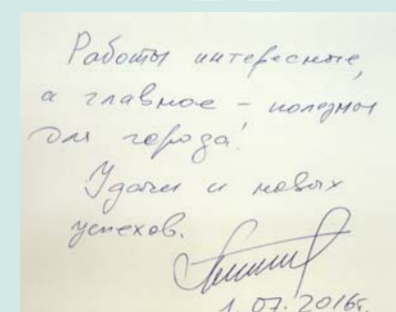 Работы интересные,
а главное – полезные
для города!
Удачи и новых
успехов.
1.07.2016г.